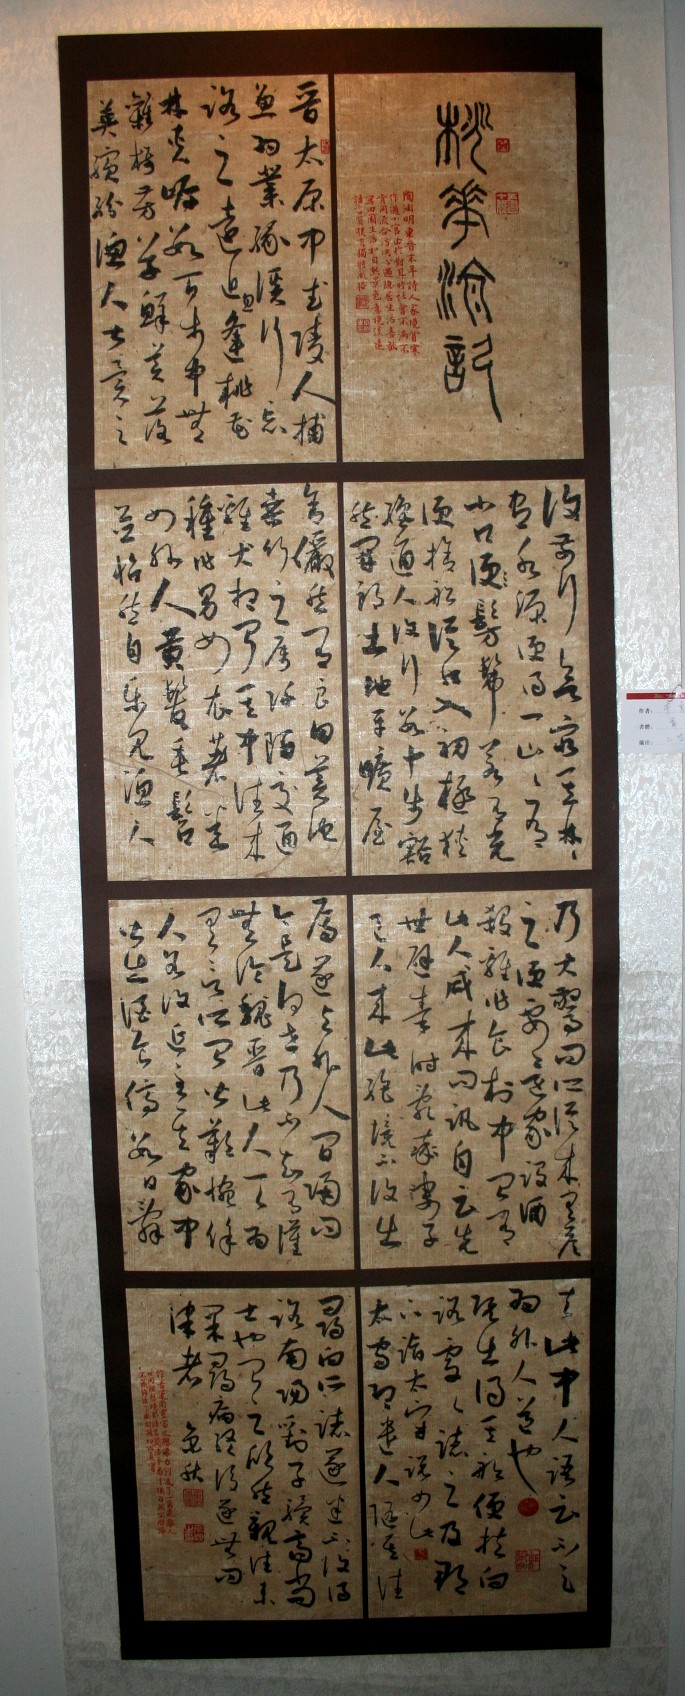 桃華源記
陶淵明東晉末年詩人家境貧寒
作過小官由於對其時社會不滿不
肯同流合污決心過隱居生活喜歡
寫田園生活和自然景色意境深遠
語言質樸有獨特風格
晉太原中武陵人捕
魚為業緣溪行忘
路之遠近忽逢桃花
林夾岸數百步中無
雜樹芳草鮮美落
英繽紛漁人甚異之
復前行欲窮其林〻
盡水源便得一山〻有
小口便髣髴若有光
便捨船從口入初極狹
纔通人復行數十步豁
然開朗土地平曠屋
舍儼然有良田美池
桑竹之屬阡陌交通
雞犬相聞其中往來
種作男女衣著悉
如外人黃髮垂髫
並怡然自樂見漁人
乃大驚問所從來具答
之便要還家設酒
殺雞作食村中聞有
此人咸來問訊自云先
世避秦時亂率妻子
邑人來此絕境不復出
焉遂與外人間隔問
今是何世乃不知有漢
無論魏晉此人一一為
具言所聞皆歎惋餘
人各復延至其家中
皆出酒食停數日辭
去此中人語云不足
為外人道也
既出得其船便扶向
路處〻誌之及郡
下詣太守說如此
太守即遣人隨其往
尋向所誌遂迷不復得
路南陽劉子驥高尚
士也聞之欣然規往未
果尋病終後遂無問
津者
作者:
書體:
備註: